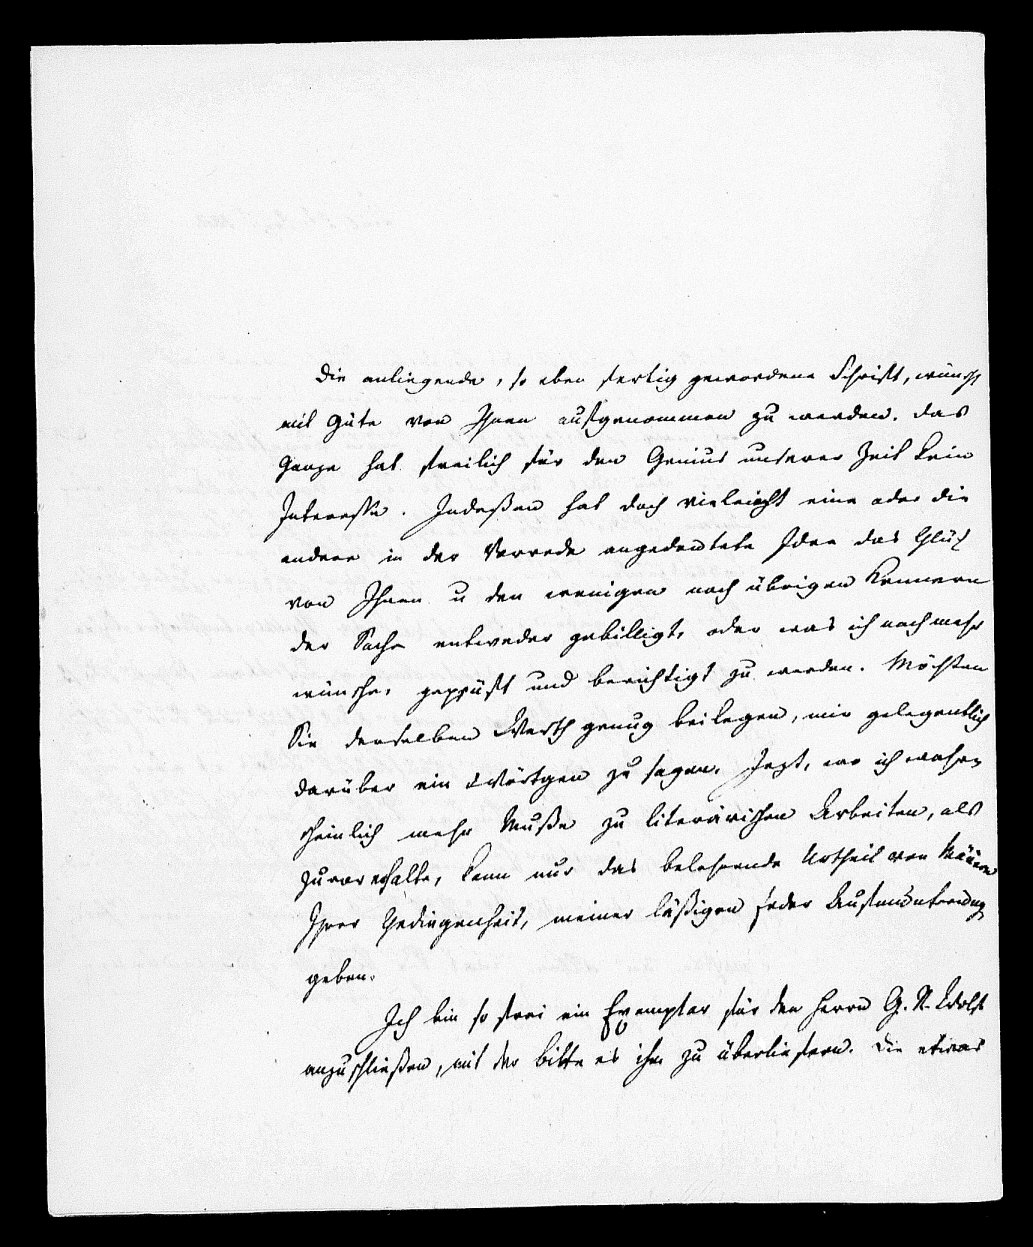 Die anliegende, so eben fertig gewordene Schrift, wünscht
mit Güte von Ihnen aufgenommen zu werden. Das
Ganze hat freilich für den Genius unserer Zeit kein
Interesse. Indeßen hat doch vieleicht eine oder die
andere in der Vorrede angedeutete Idee das Glück
von Ihnen u den wenigen noch übrigen Kennern
der Sache entweder gebilligt, oder was ich noch mehr
wünsche, geprüft und berichtigt zu werden. Möchten
Sie derselben Werth genug beilegen, mir gelegentlich
darüber ein Wörtgen zu sagen. Jezt, wo ich wahr=
scheinlich mehr Muße zu literärischen Arbeiten, als
zuvor erhalte, kann nur das belehrende Urtheil von Männern
Ihrer Gediegenheit, meiner läßigen Feder Aufmunterung
geben.
Ich bin so frei ein Exemplar für den Herrn G. R. Wolf
anzuschließen, mit der bitte es ihm zu überliefern. Die etwas